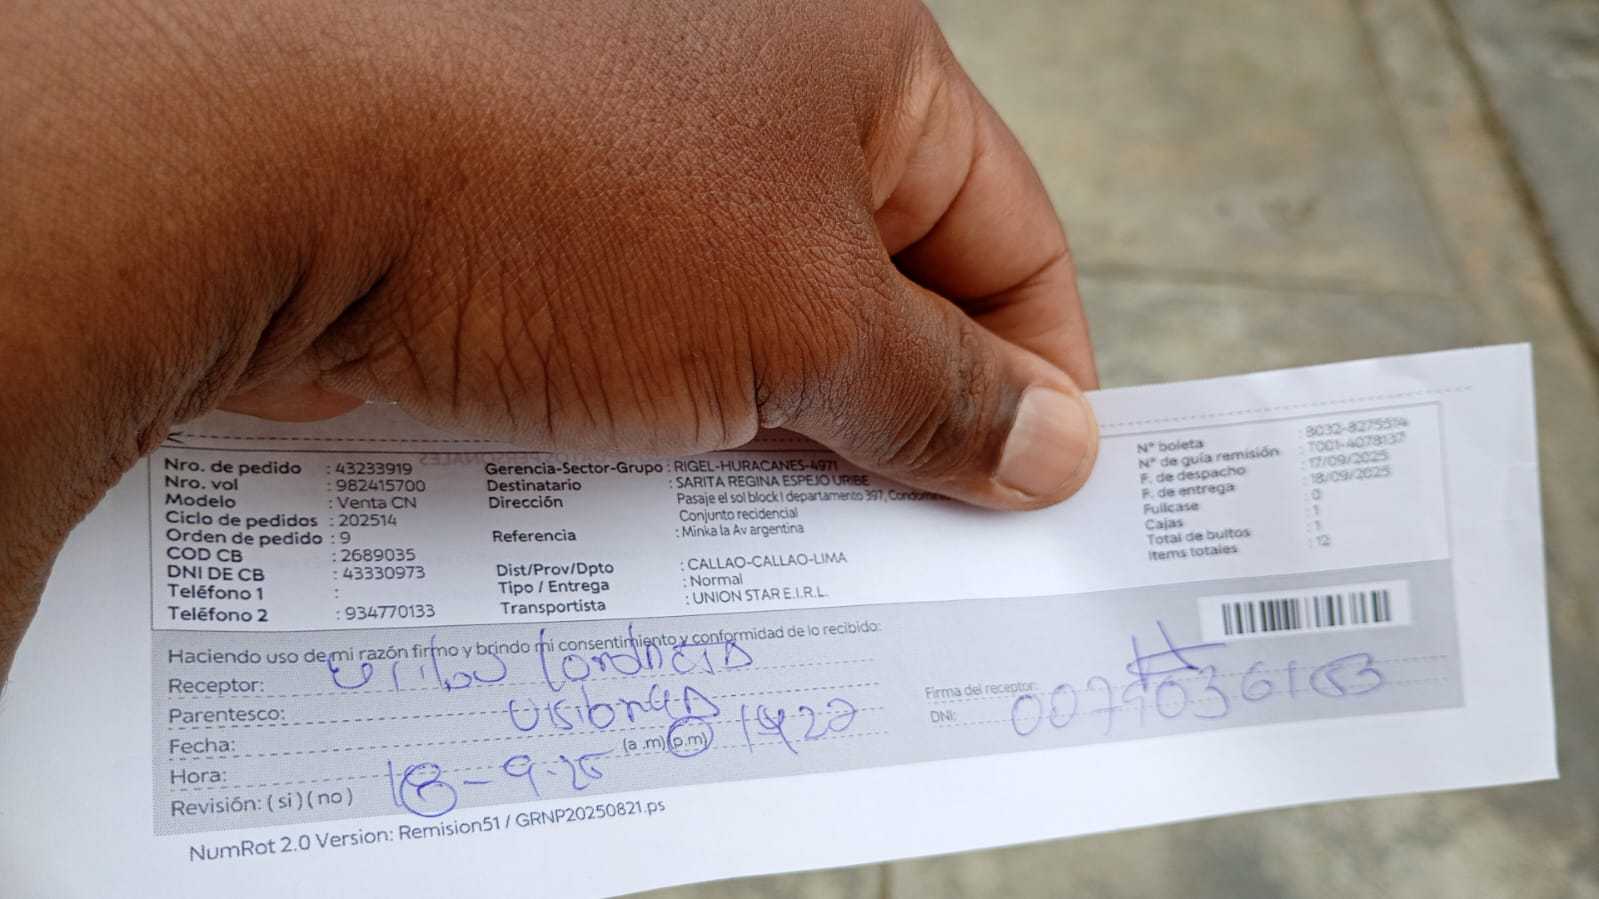 Nro. de pedido : 43233919
Nro. vol : 982415700
Modelo : Venta CN
Ciclo de pedidos : 202514
Orden de pedido : 9
COD CB : 2689035
DNI DE CB : 43330973
Teléfono 1 :
Teléfono 2 : 934770133
Gerencia-Sector-Grupo : RIGEL-HURACANES-4971
Destinatario : SARITA REGINA ESPEJO URIBE
Dirección Pasaje el sol block I departamento 397, Condomin
Conjunto recidencial
Referencia : Minka la Av argentina
Dist/Prov/Dpto : CALLAO-CALLAO-LIMA
Tipo / Entrega : Normal
Transportista : UNION STAR E.I.R.L.
N° boleta : B032-8275514
N° de guía remisión : T001-4078137
F. de despacho : 17/09/2025
F. de entrega : 18/09/2025
Fullcase : 0
Cajas : 1
Total de bultos : 1
Items totales : 12
Haciendo uso de mi razón firmo y brindo mi consentimiento y conformidad de lo recibido:
Receptor:
Parentesco:
Fecha: 1422
Hora: (a .m) (p.m)
Revisión: ( si ) ( no ) 18-9-25
Firma del receptor:
DNI:
NumRot 2.0 Version: Remision51 / GRNP20250821.ps